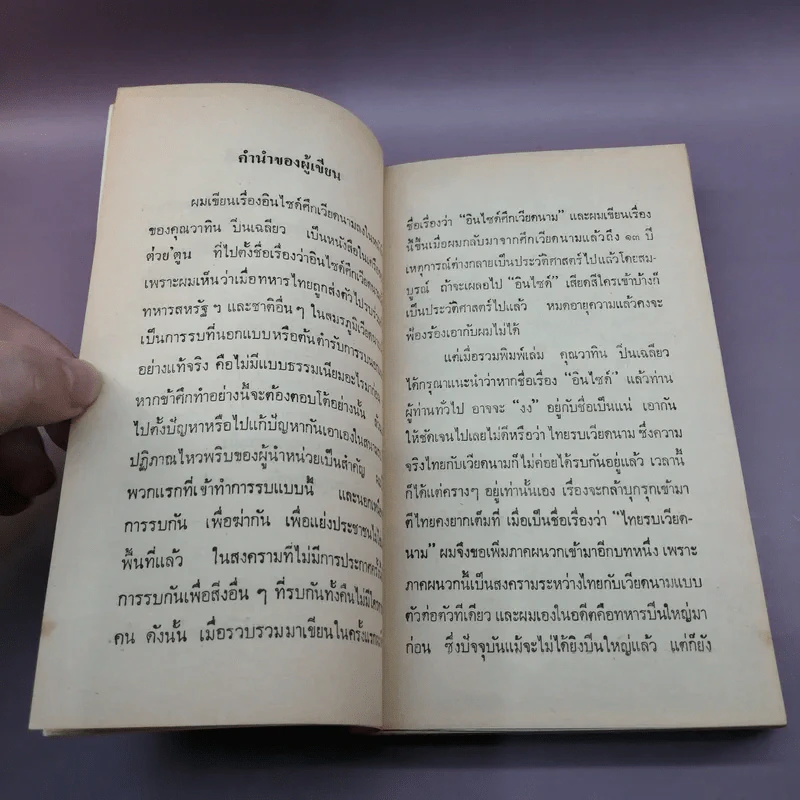 คำนำของผู้เขียน
ผมเขียนเรื่องอินไซด์ศึกเวียดนามลงในหนัง
ของคุณวาทิน ปิ่นเฉลียว เป็นหนังสือในเครือ
ต่วย'ตูน ที่ไปตั้งชื่อเรื่องว่าอินไซด์ศึกเวียดนาม
เพราะผมเห็นว่าเมื่อทหารไทยถูกส่งตัวไปรบร่วม
ทหารสหรัฐฯ และชาติอื่นๆ ในสมรภูมิเวียด
เป็นการรบที่นอกแบบหรือต้นตำรับการรบ
อย่างแท้จริง คือไม่มีแบบธรรมเนียมอะไรมาก่อน
หากข้าศึกทำอย่างนี้จะต้องตอบโต้อย่างนั้น
ไปตั้งปัญหาหรือไปแก้ปัญหากันเอาเองในสนาม
ปฏิภาณไหวพริบของผู้นำหน่วยเป็นสำคัญ
พวกแรกที่เข้าทำการรบแบบนี้ และนอก
การรบกัน เพื่อฆ่ากัน เพื่อแย่งประชาชน
พื้นที่แล้ว ในสงครามที่ไม่มีการประกาศ
การรบกันเพื่อสิ่งอื่น ๆ ที่รบกันทั้งคืนไม่มีใคร
คน ดังนั้น เมื่อรวบรวมมาเขียนในครั้งแรก
ชื่อเรื่องว่า "อินไซด์ศึกเวียดนาม" และผมเขียนเรื่อง
นี้ขึ้นเมื่อผมกลับมาจากศึกเวียดนามแล้วถึง ๑๓ ปี
เหตุการณ์ต่างกลายเป็นประวัติศาสตร์ไปแล้วโดยสม-
บูรณ์ ถ้าจะเผลอไป "อินไซด์" เสียดสีใครเข้าบ้างก็
เป็นประวัติศาสตร์ไปแล้ว หมดอายุความแล้วคงจะ
ฟ้องร้องเอากับผมไม่ได้
แต่เมื่อรวมพิมพ์เล่ม คุณวาทิน ปิ่นเฉลียว
ได้กรุณาแนะนำว่าหากชื่อเรื่อง "อินไซด์" แล้วท่าน
ผู้อ่านทั่วไป อาจจะ "งง" อยู่กับชื่อเป็นแน่ เอากัน
ให้ชัดเจนไปเลยไม่ดีหรือว่า ไทยรบเวียดนาม ซึ่งความ
จริงไทยกับเวียดนามก็ไม่ค่อยได้รบกันอยู่แล้ว เวลานี้
ก็ได้แต่ครางๆ อยู่เท่านั้นเอง เรื่องจะกล้าบุกรุกเข้ามา
ตีไทยคงยากเต็มที่ เมื่อเป็นชื่อเรื่องว่า "ไทยรบเวียด-
นาม" ผมจึงขอเพิ่มภาคผนวกเข้ามาอีกบทหนึ่ง เพราะ
ภาคผนวกนี้เป็นสงครามระหว่างไทยกับเวียดนามแบบ
ตัวต่อตัวทีเดียว และผมเองในอดีตคือทหารปืนใหญ่มา
ก่อน ซึ่งปัจจุบันแม้จะไม่ได้ยิงปืนใหญ่แล้ว แต่ก็ยัง